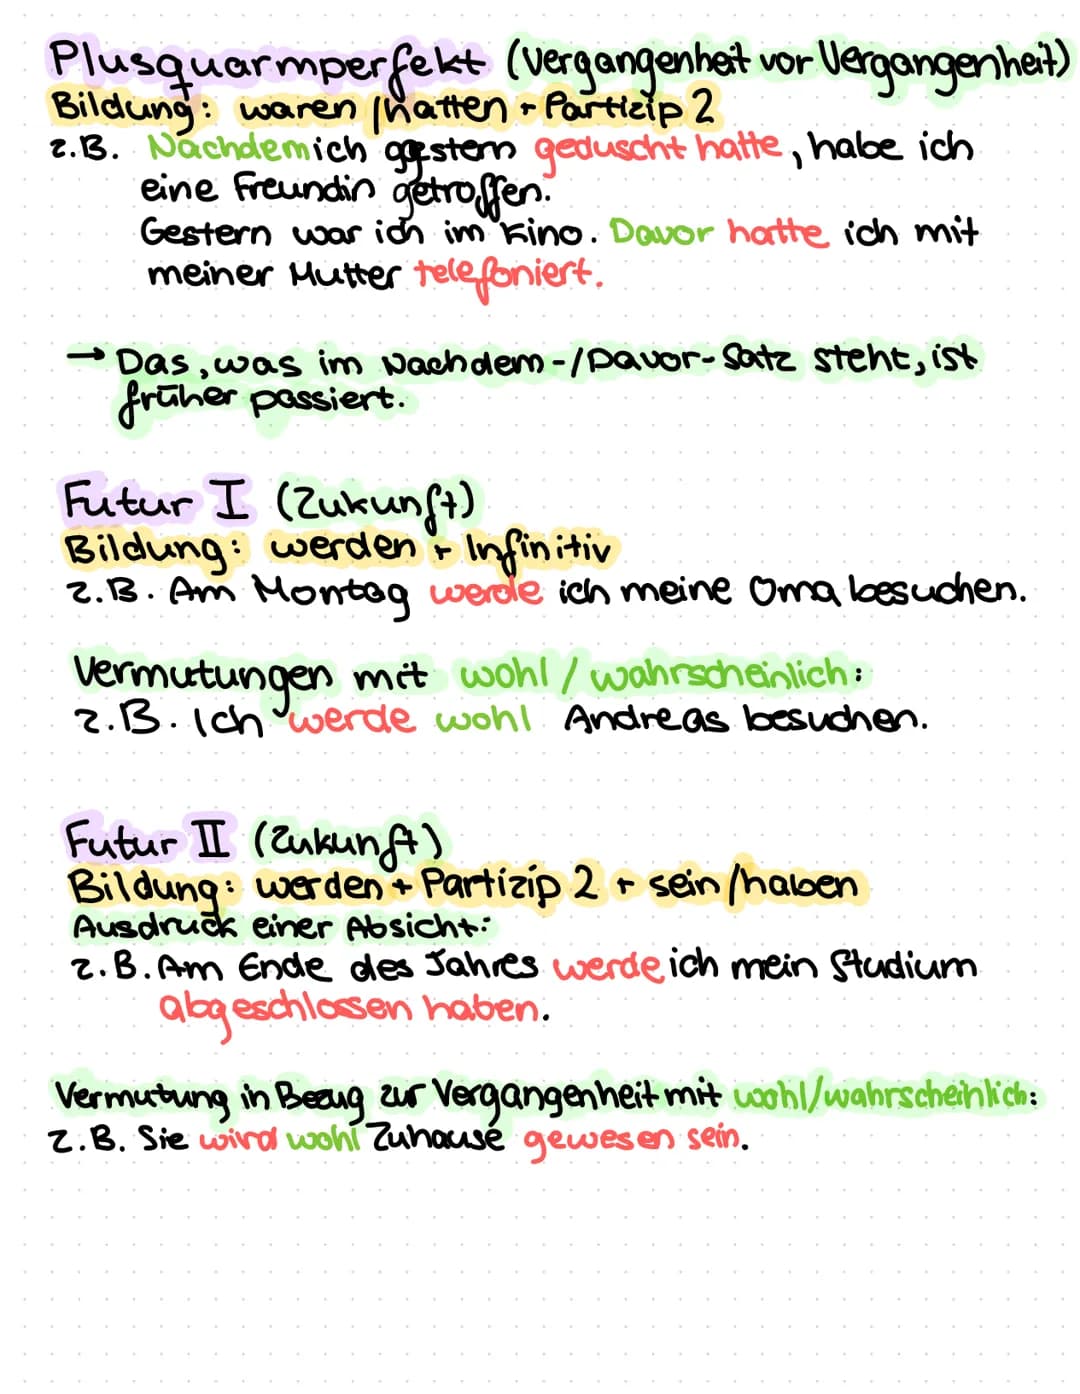 Plusquarmperfekt (Vergangenheit vor Vergangenheit)
Bildung: waren/hatten + Partizip 2
z.B. Nachdem ich gestern geduscht hatte, habe ich
eine Freundin getroffen.
Gestern war ich im Kino. Davor hatte ich mit
meiner Mutter telefoniert.
→ Das, was im Nachdem-/Davor-Satz steht, ist
früher passiert.
Futur I (Zukunft)
Bildung: werden + Infinitiv
z.B. Am Montag werde ich meine Oma besuchen.
Vermutungen mit wohl/wahrscheinlich:
z.B. Ich werde wohl Andreas besuchen.
Futur II (Zukunft)
Bildung: werden + Partizip 2 + sein/haben
Ausdruck einer Absicht:
z.B. Am Ende des Jahres werde ich mein Studium
abgeschlossen haben.
Vermutung in Bezug zur Vergangenheit mit wohl/wahrscheinlich:
z.B. Sie wird wohl Zuhause gewesen sein.